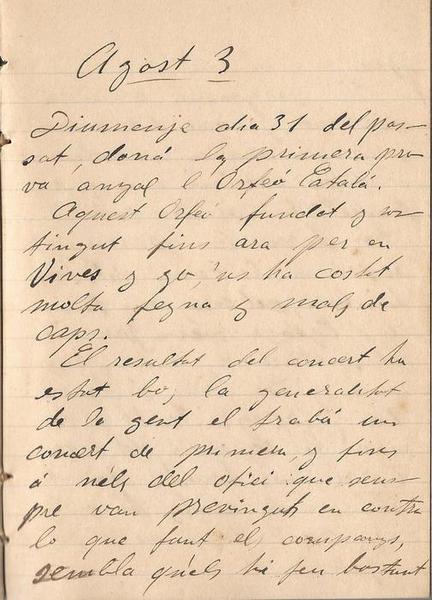 Agost 3
Diumenje dia 31 del pas-
sat, doná la primera pro
va anyal l'Orfeó Catalá.
Aquest Orfeó fundat y sos
tingut fins ara per en
Vives y yo, 'ns ha costat
molta feyna y mals de
caps.
El resultat del concert ha
estat bo; la generalitat
de la gent el trobá un
concert de primera, y fins
á n'els del ofici que sem-
pre van previnguts en contra
lo que fant el companys,
sembla qu'els hi feu bastant